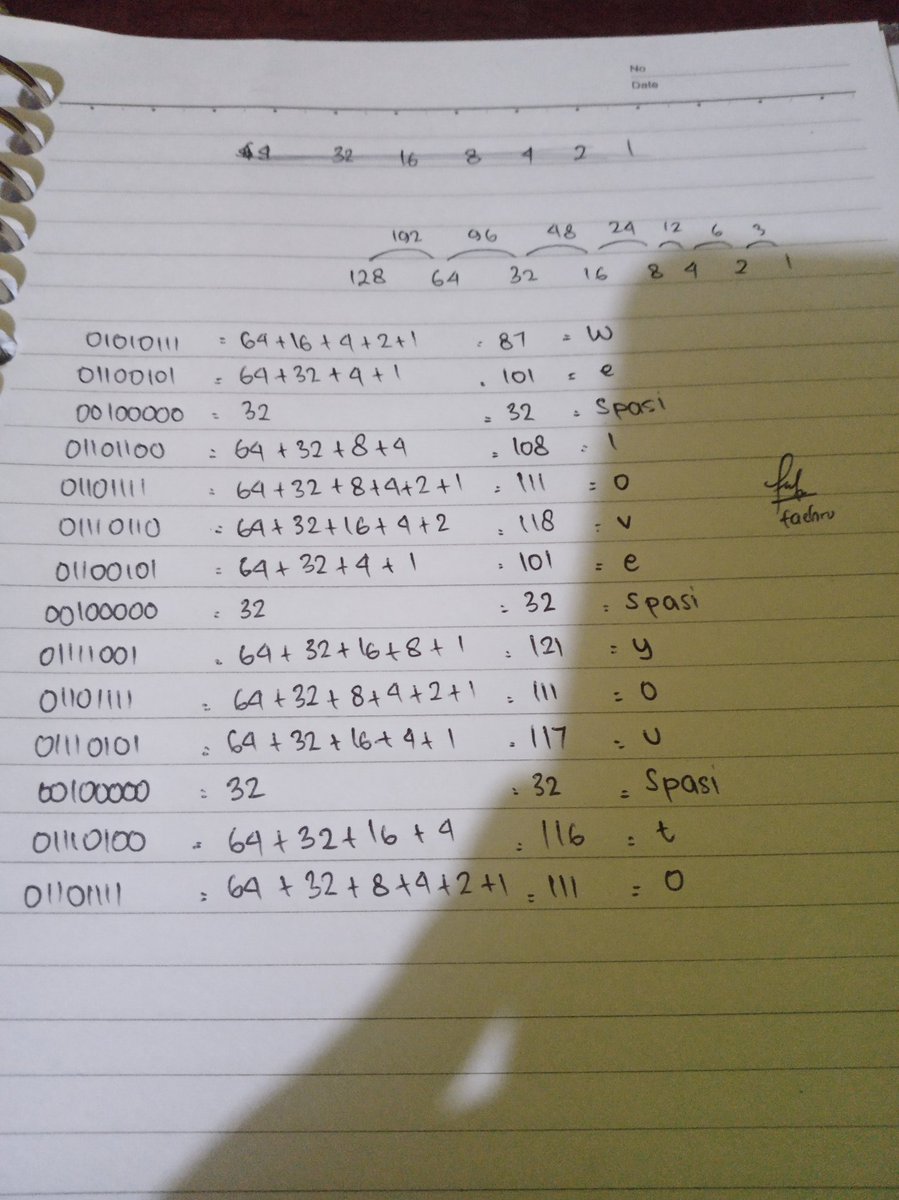 No
Date
64 32 16 8 4 2 1
192 96 48 24 12 6 3
128 64 32 16 8 4 2 1
01010111 = 64+16+4+2+1 = 87 = W
01100101 = 64+32+4+1 = 101 = e
00100000 = 32 = 32 = Spasi
01101100 = 64+32+8+4 = 108 = l
01101111 = 64+32+8+4+2+1 = 111 = o
01110110 = 64+32+16+4+2 = 118 = v
01100101 = 64+32+4+1 = 101 = e
00100000 = 32 = 32 = Spasi
01111001 = 64+32+16+8+1 = 121 = y
01101111 = 64+32+8+4+2+1 = 111 = o
01110101 = 64+32+16+4+1 = 117 = u
00100000 = 32 = 32 = Spasi
01110100 = 64+32+16+4 = 116 = t
01101111 = 64+32+8+4+2+1 = 111 = o